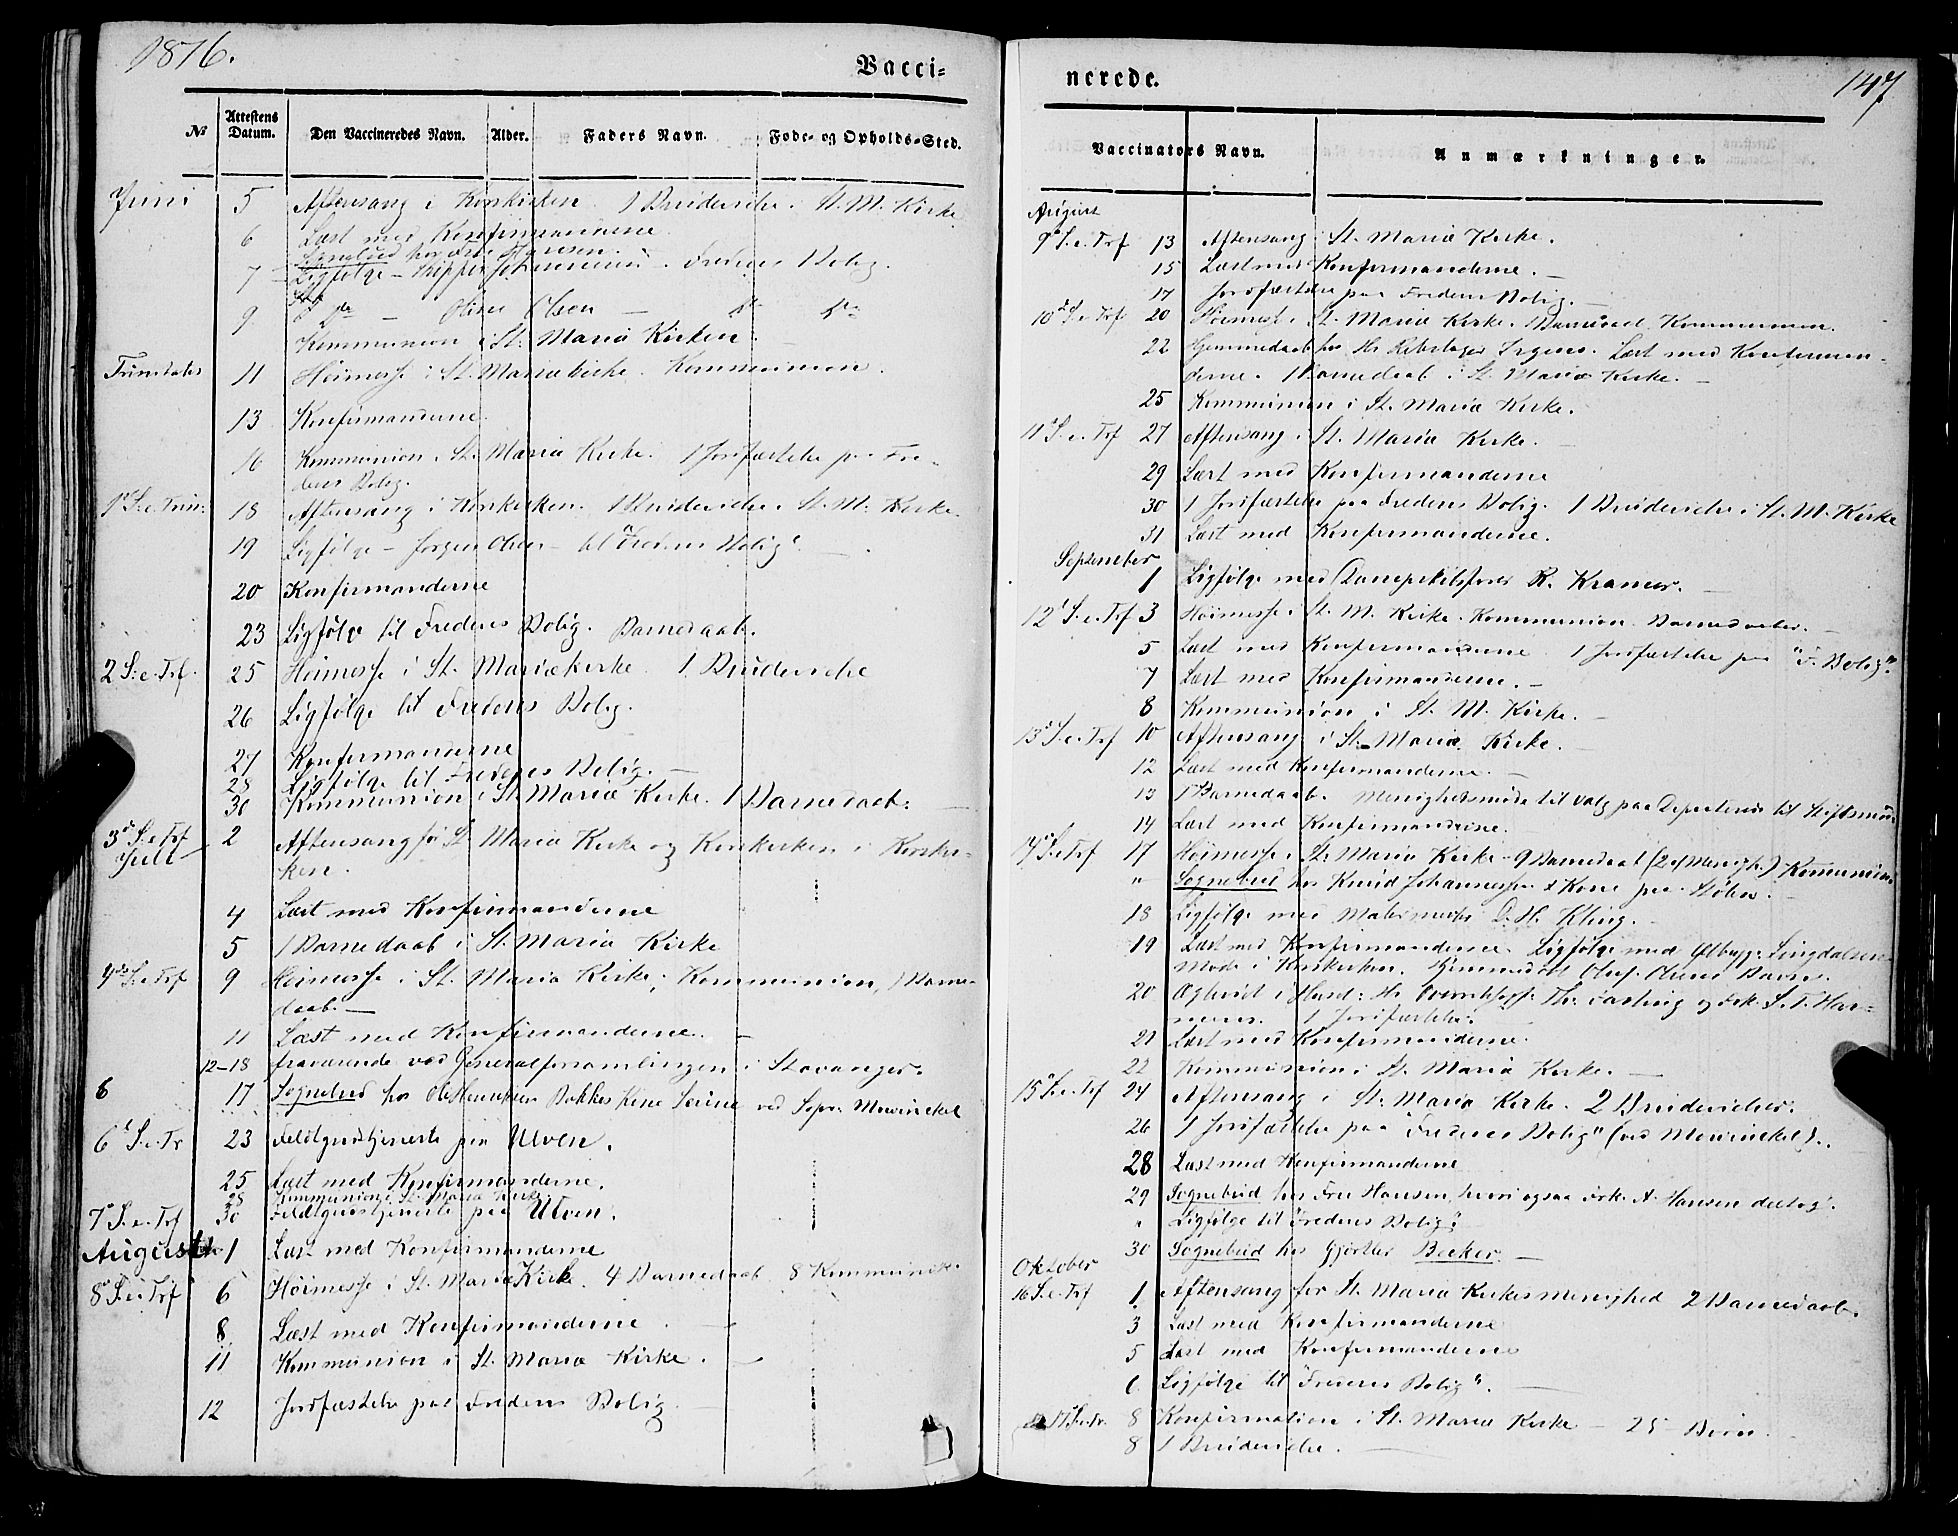 1876.
Vacci-
№ Attestens Datum. Den Vaccineredes Navn. Alder. Faders Navn. Føde- og Opholds-Sted.
Juni 5 Aftensang i Korskirken. 1 Brudevielse. St. M. Kirke
6 Læst med Konfirmanderne.
Sognebud hos
7 Ligfølge — Fredens Bolig.
9 Oline Olsen — do
Kommunion i St. Mariæ Kirken.
11 Høimesse i St. Mariæ kirke. Kommunion.
13 Konfirmanderne.
16 Kommunion i St. Mariæ Kirke. 1 Jordfæstelse paa Fre-
dens Bolig.
1 S. e. Trin: 18 Aftensang i Korskirken. 1 Brudevielse. St. M. Kirke.
19 Ligfølge — Jørgen Olsen — til "Fredens Bolig".
20 Konfirmanderne
23 Ligfølge til Fredens Bolig. Barnedaab.
2 S. e. Trf. 25 Høimesse i St. Mariækirke. 1 Brudevielse
26 Ligfølge til Fredens Bolig.
27 Konfirmanderne
28 Ligfølge til Fredens Bolig. —
30 Kommunion i St. Mariæ Kirke. 1 Barnedaab. —
3 S. e. Trf 2 Aftensang St. Mariæ Kirke og Korskirken i Korskir-
Juli ken.
4 Læst med Konfirmanderne
5 1 Barnedaab i St. Mariæ Kirke
4 S. e. Trf 9 Høimesse i St. Mariæ Kirke; Kommunion, 1 Barne-
daab. —
11 Læst med Konfirmanderne. —
12-18 fraværende ved Generalforsamlingen i Stavanger.
6 17 Sognebud hos Ole Kone Serine ved
6 S. e. Tr 23 Feltgudstjeneste paa Ulven.
25 Læst med Konfirmanderne.
28 Kommunion i St. Mariæ Kirke.
7 S. e. Trf 30 Feltgudstjeneste paa Ulven.
August 1 Læst med Konfirmanderne
8 S. e. Trf 6 Høimesse i St. Mariæ Kirk. 4 Barnedaab. 8
8 Læst med Konfirmanderne. —
11 Kommunion i St. Mariæ Kirke. —
12 Jordfæstelse paa Fredens Bolig. —
147
nerede.
Vaccinators Navn. Anmærkninger.
August
9 S. e. Trf 13 Aftensang i St. Mariæ Kirke.
15 Læst med Konfirmanderne. —
17 Jordfæstelse paa Fredens Bolig. —
10 S. e. Trf. 20 Høimesse i St. Mariæ Kirke. Kommunion.
22 Hjemmedaab hos Hr. Læst med Konfirman-
derne. 1 Barnedaab i St. Mariæ Kirke. —
25 Kommunion i St. Mariæ Kirke.
11 S. e. Trf 27 Aftensang i St. Mariæ Kirke. —
29 Læst med Konfirmanderne
30 1 Jordfæstelse paa Fredens Bolig. 1 Brudevielse i St. M. Kirke
31 Læst med Konfirmanderne.
September
1 Ligfølge med R. Kramer. —
12 S. e. Trf 3 Høimesse i St. M. Kirke. Kommunion. Barnedaab. —
5 Læst med Konfirmanderne. 1 Jordfæstelse paa "F. Bolig".
7 Læst med Konfirmanderne. —
8 Kommunion i St. M. Kirke. —
13 S. e. Trf 10 Aftensang i St. Mariæ Kirke. —
12 Læst med Konfirmanderne. —
13 1 Barnedaab. Menighedsmøde til Valg paa Deputerede til Stiftsmøde
14 Læst med Konfirmanderne.
14 S. e. Trf 17 Høimesse i St. Mariæ Kirke. 9 Barnedaab Kommunion
" Sognebud hos Knud Johannessen & Kone paa Stølen. —
18 Ligfølge med Malermester D. H. Kling. —
19 Læst med Konfirmanderne. Ligfølge med Lingdalsen
Møde i Korskirken. Hjemmedøbt Oluf Barn.
20
1 Jordfæstelse.
21 Læst med Konfirmanderne.
22 Kommunion i St. Mariæ Kirke. —
15 S. e. Trf 24 Aftensang i St. Mariæ Kirke. 2 Brudevielser.
26 1 Jordfæstelse paa "Fredens Bolig"
28 Læst med Konfirmanderne
29 Sognebud hos Fru Hansen, hvori ogsaa Frk. A. Hansen deltog.
" Ligfølge til "Fredens Bolig".
30 Sognebud hos Gjørtler Becker —
Oktober
16 S. e. Trf 1 Aftensang for St. Mariæ Kirkes menighed 2 Barnedaab.
3 Læst med Konfirmanderne
5 Læst med Konfirmanderne
6 Ligfølge til "Fredens Bolig". —
17 S. e. Tr. 8 Konfirmation i St. Mariæ Kirke — 25 Børn.
8 1 Brudevielse. —